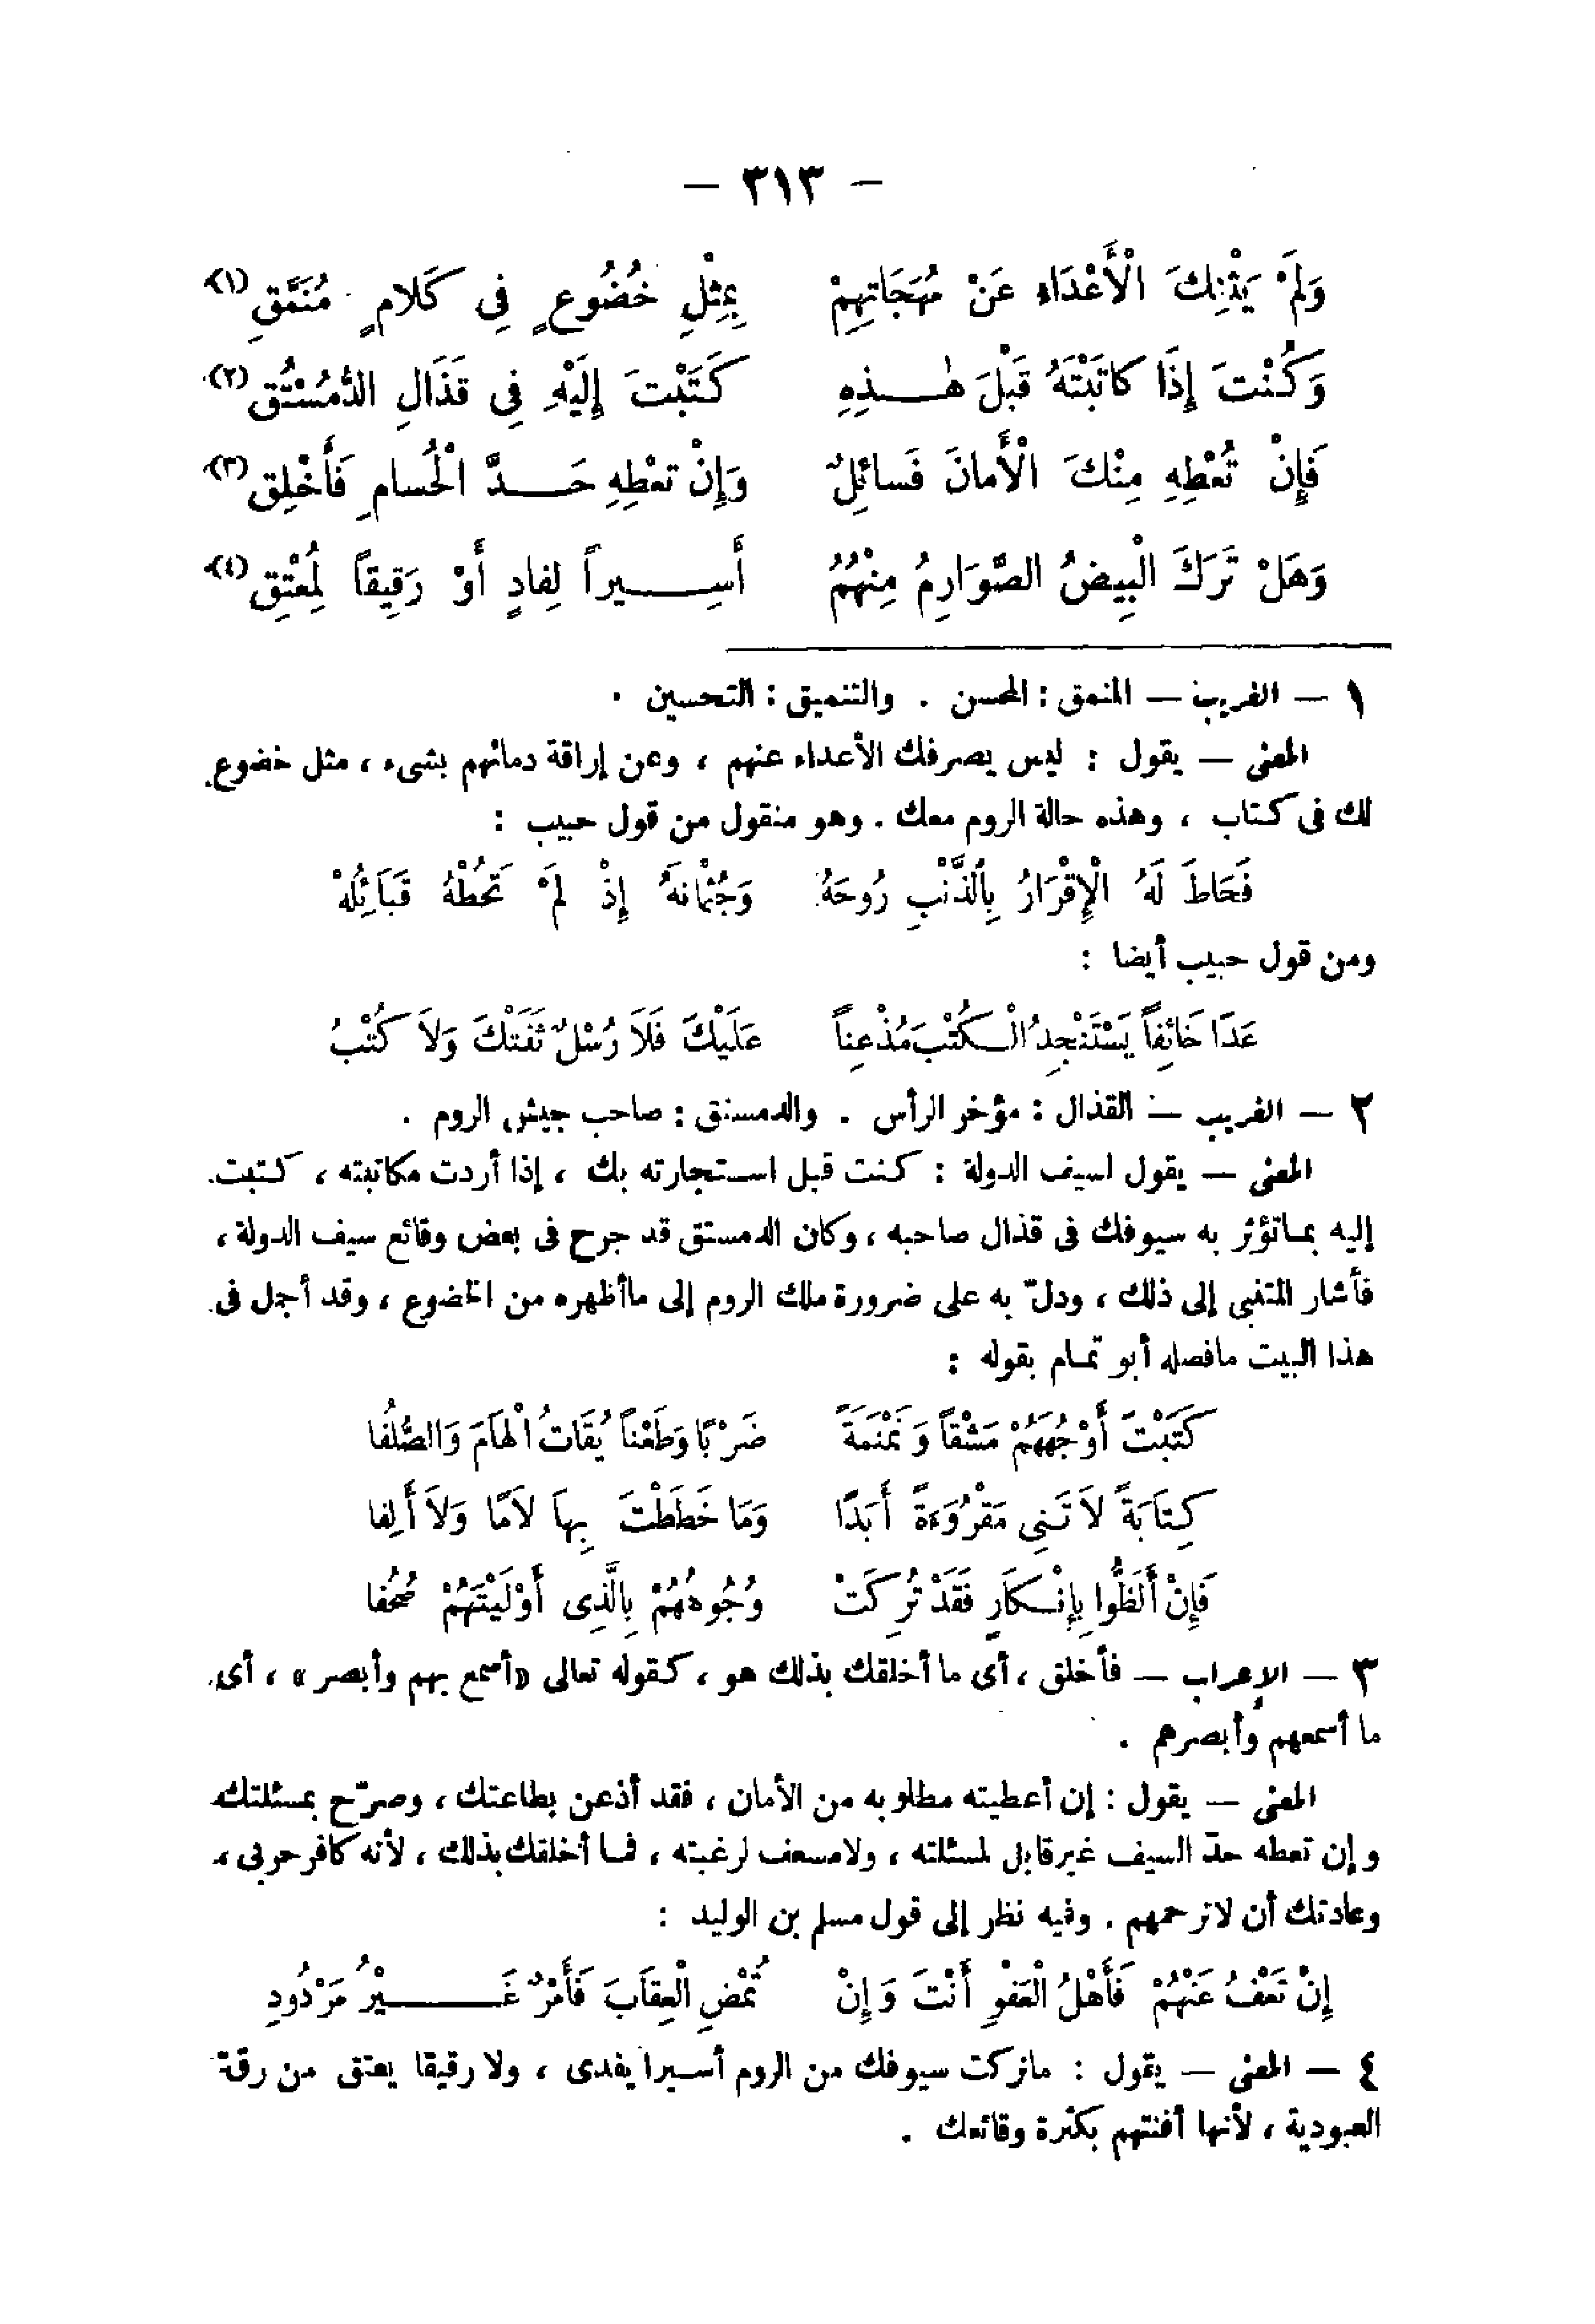 — ٣١٣ —
وَلَمْ يَثْنِكَ الْأَعْدَاءُ عَنْ مُهَجَاتِهِمْ بِمِثْلِ خُضُوعٍ فِى كَلَامٍ مُنَمَّقِ (١)
وَكُنْتَ إِذَا كاتَبْتَهُ قَبْلَ هٰـذِهِ كَتَبْتَ إِلَيْهِ فِى قَذَالِ الدُّمُسْتُقِ (٢)
فَإِنْ تُعْطِهِ مِنْكَ الْأَمانَ فَسائِلٌ وَإِنْ تعْطِهِ حَـدَّ الْحُسامِ فَأَخْلِقِ (٣)
وَهَلْ تَرَكَ الْبِيضُ الصَّوَارِمُ مِنْهُمُ أَسِـيراً لِفادٍ أَوْ رَقِيقاً لِمُعْتِقِ (٤)
١ — الغريب — المنمق : المحسن . والتنميق : التحسين .
المعنى — يقول : ليس يصرفك الأعداء عنهم ، وعن إراقة دمائهم بشىء ، مثل خضوع
لك فى كتاب ، وهذه حالة الروم معك . وهو منقول من قول حبيب :
فَحَاطَ لَهُ الْإِقْرَارُ بِالذَّنْبِ رُوحَهُ وَجُثْمانَهُ إِذْ لَمْ تَحُطْهُ قَبَائِلُهْ
ومن قول حبيب أيضا :
عَدَا خَائِفاً يَسْتَنْجِدُ الْـكُتْبَ مُذْعِناً عَلَيْكَ فَلَا رُسْلٌ ثَنَتْكَ وَلَا كُتْبُ
٢ — الغريب — القذال : مؤخر الرأس . والدمستق : صاحب جيش الروم .
المعنى — يقول لسيف الدولة : كنت قبل استجارته بك ، إذا أردت مكاتبته ، كتبت
إليه بما تؤثر به سيوفك فى قذال صاحبه ، وكان الدمستق قد جرح فى بعض وقائع سيف الدولة ،
فأشار المتنبى إلى ذلك ، ودلّ به على ضرورة ملك الروم إلى ماأظهره من الخضوع ، وقد أجمل فى
هذا البيت مافصله أبو تمـام بقوله :
كَتَبْتَ أَوْجُهَهُمْ مَشْقاً وَنَمْنَمَةً ضَرْبًا وَطَعْناً يُقَاتُ الْهَامَ وَالصُّلُفَا
كِتَابَةً لَا تَنِى مَقْرُوءَةً أَبَدًا وَمَا خَطَطْتَ بِهَا لَامًا وَلَا أَلِفا
فَإِنْ أَلَظُّوا بِإِنْـكَارٍ فَقَدْ تُرِكَتْ وُجُوهُهُمْ بِالَّذِى أَوْلَيْتَهُمْ صُحُفا
٣ — الإعراب — فأخلق ، أى ما أخلقك بذلك هو ، كقوله تعالى «أسمع بهم وأبصر» ، أى
ما أسمعهم وأبصرهم .
المعنى — يقول : إن أعطيته مطلوبه من الأمان ، فقد أذعن بطاعتك ، وصرّح بمسئلتك
وإن تعطه حدّ السيف غير قابل لمسئلته ، ولا مسعف لرغبته ، فما أخلقك بذلك ، لأنه كافر حربى ،
وعادتك أن لا ترحمهم . وفيه نظر إلى قول مسلم بن الوليد :
إِنْ تَعْفُ عَنْهُمْ فَأَهْلُ الْعَفْوِ أَنْتَ وَإِنْ تُمْضِ الْعِقَابَ فَأَمْرٌ غَـيْرُ مَرْدُودِ
٤ — المعنى — يقول : ماتركت سيوفك من الروم أسـيرا يفدى ، ولا رقيقا يعتق من رقة
العبودية ، لأنها أفنتهم بكثرة وقائعك .